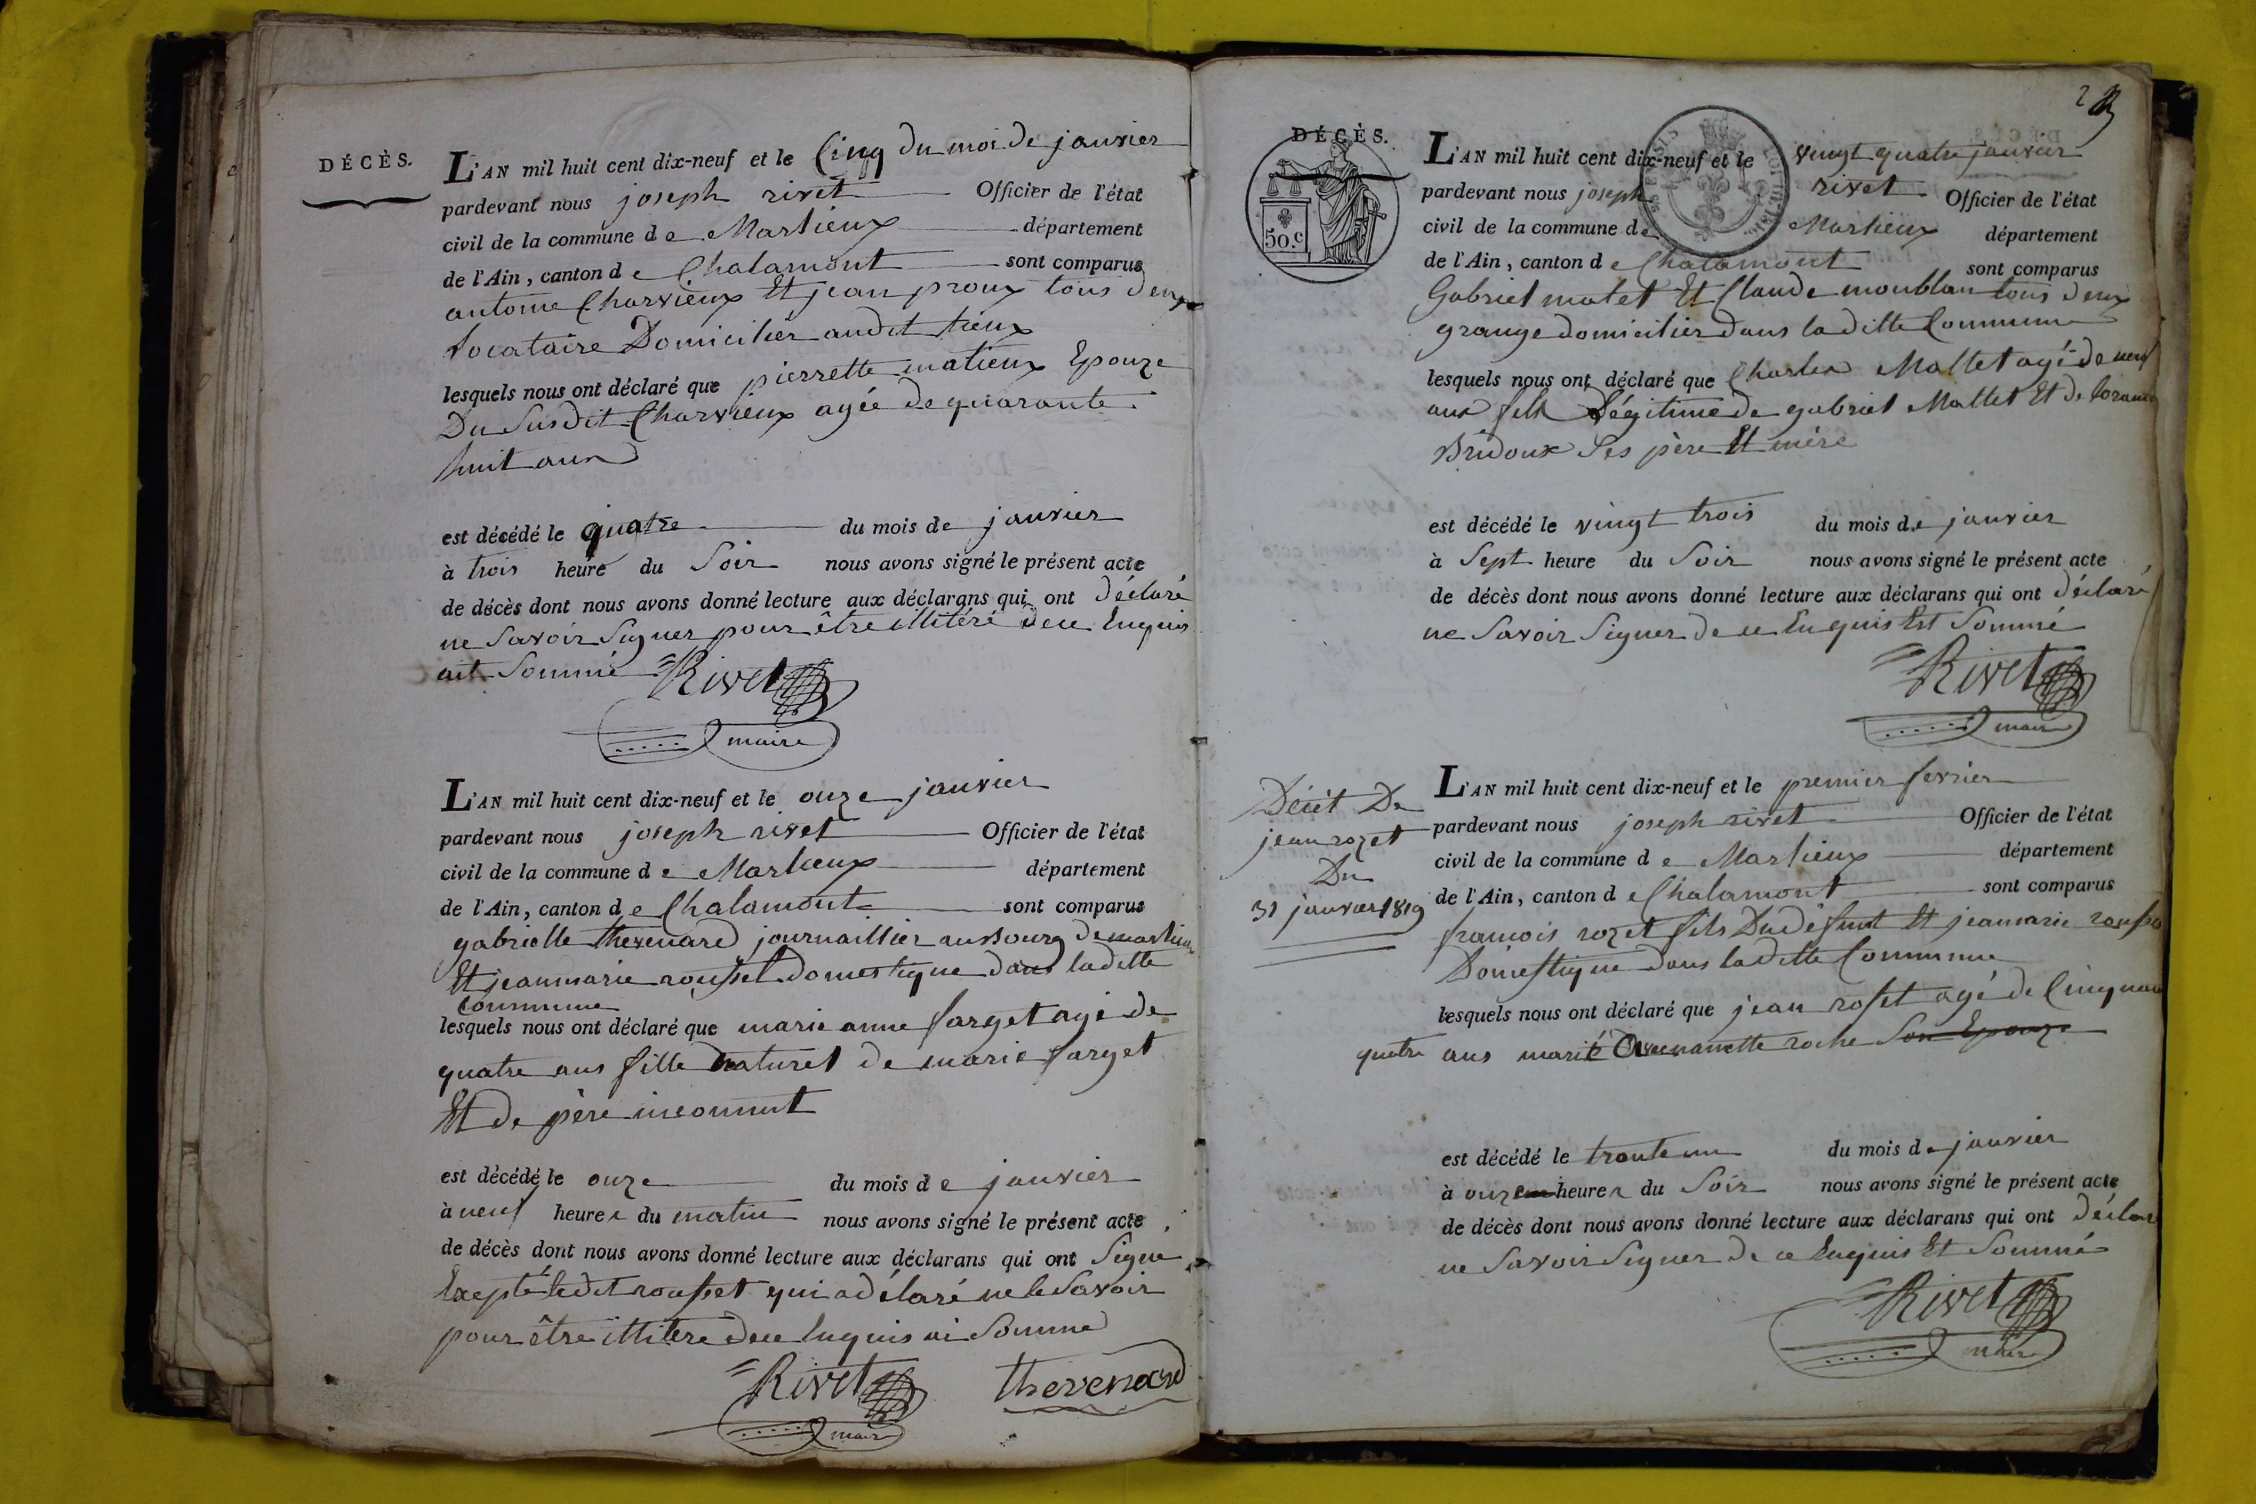 DÉCÈS.
L'AN mil huit cent dix-neuf et le Cinq du moi de janvier
pardevant nous joseph rivet Officier de l'état
civil de la commune de Marlieux département
de l'Ain, canton de Chalamont sont comparus
antoine Charvieux Et jean proux tous deux
locataire Domicilier audit lieux
lesquels nous ont déclaré que pierrette matieux Epouze
Du Susdit Charvieux agée de quarante
huit ans
est décédé le quatre du mois de janvier
à trois heure du Soir nous avons signé le présent acte
de décès dont nous avons donné lecture aux déclarans qui ont déclaré
ne Savoir Signer pour être illitéré de ce Enquis
ait Sommé Rivet
maire
L'AN mil huit cent dix-neuf et le onze janvier
pardevant nous joseph rivet Officier de l'état
civil de la commune de Marlieux département
de l'Ain, canton de Chalamont sont comparus
gabrielle thevenard journaillier au Bourg de marlieux
Et jeanmarie roussel domestique dans laditte
Commune
lesquels nous ont déclaré que marie anne farget agé de
quatre ans fille naturel de marie farget
Et de père inconnut
est décédé le onze du mois de janvier
à neuf heures du matin nous avons signé le présent acte
de décès dont nous avons donné lecture aux déclarans qui ont Signé
Excepté ledit roussel qui a déclaré ne le Savoir
pour être illitéré de ce Enquis ai Sommé
Rivet thevenard
maire
2
DÉCÈS.
50.c
L'AN mil huit cent dix-neuf et le vingt quatre janvier
pardevant nous joseph rivet Officier de l'état
civil de la commune de Marlieux département
de l'Ain, canton de Chalamont sont comparus
Gabriel malet Et Claude moublan tous deux
granger domicilier dans laditte Commune
lesquels nous ont déclaré que Charles Mallet agé de neuf
ans fils Légitime de gabriel Mallet Et de
Bridoux Ses père Et mére
est décédé le vingt trois du mois de janvier
à Sept heure du Soir nous avons signé le présent acte
de décès dont nous avons donné lecture aux déclarans qui ont déclaré
ne Savoir Signer de ce Enquis Et Sommé
Rivet
maire
Décét De
jean rozet
Du
31 janvier 1819
L'AN mil huit cent dix-neuf et le premier fevrier
pardevant nous joseph rivet Officier de l'état
civil de la commune de Marlieux département
de l'Ain, canton de Chalamont sont comparus
francois rozet fils Du défunt Et jeanmarie
Domestique dans laditte Commune
lesquels nous ont déclaré que jean roset agé de Cinquante
quatre ans marié Avec nanette roche Son Epouze
est décédé le trente un du mois de janvier
à onze heures du Soir nous avons signé le présent acte
de décès dont nous avons donné lecture aux déclarans qui ont déclaré
ne Savoir Signer de ce Enquis Et Sommé
Rivet
maire